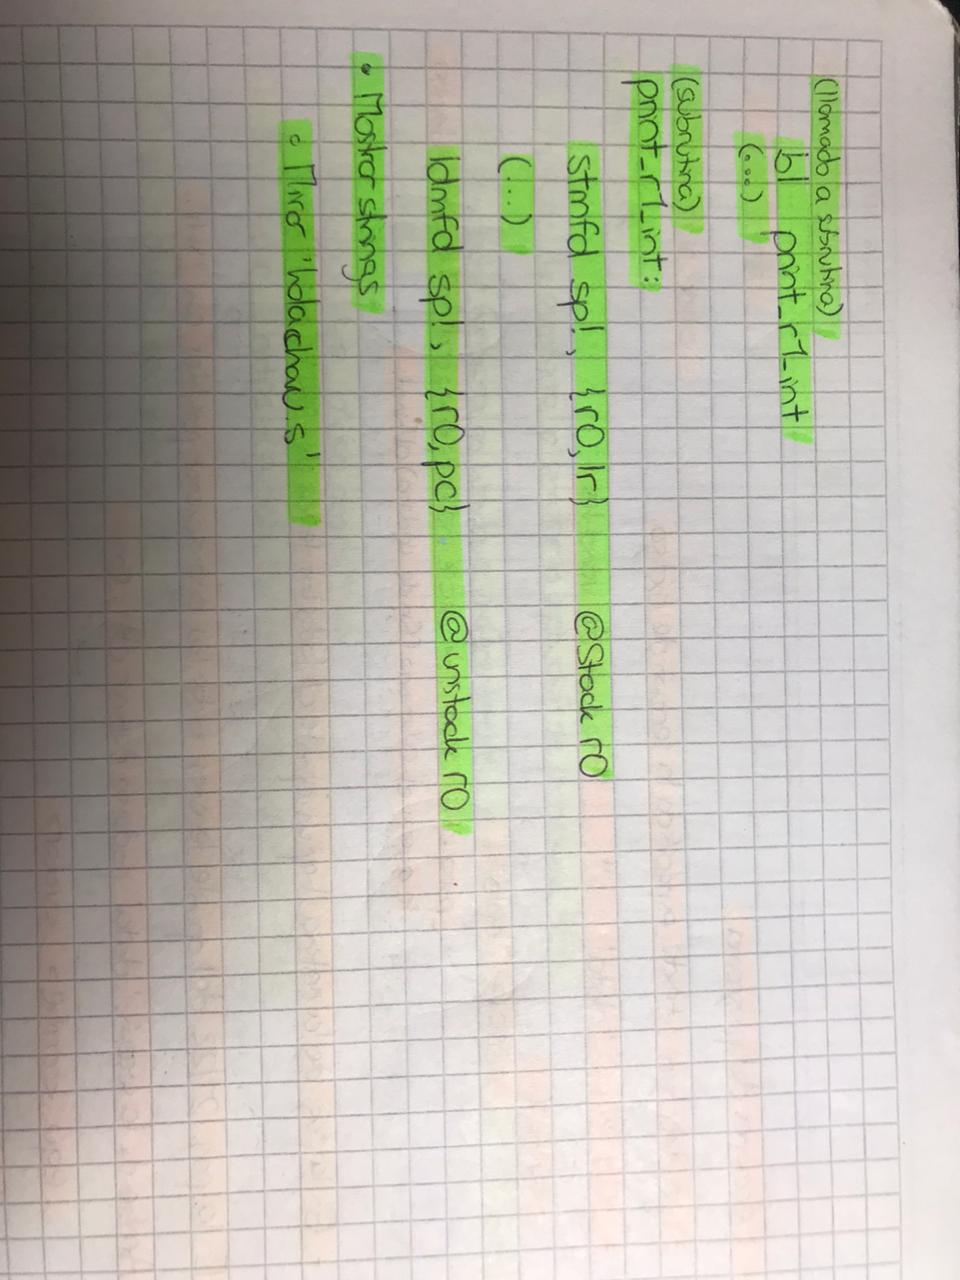 (llamado a subrutina)
bl print_r1_int
(...)
(subrutina)
print_r1_int:
stmfd sp!, {r0,lr} @Stack r0
(...)
ldmfd sp!, {r0,pc} @unstack r0
• Mostrar strings
◦ Mirar 'holachau.s'